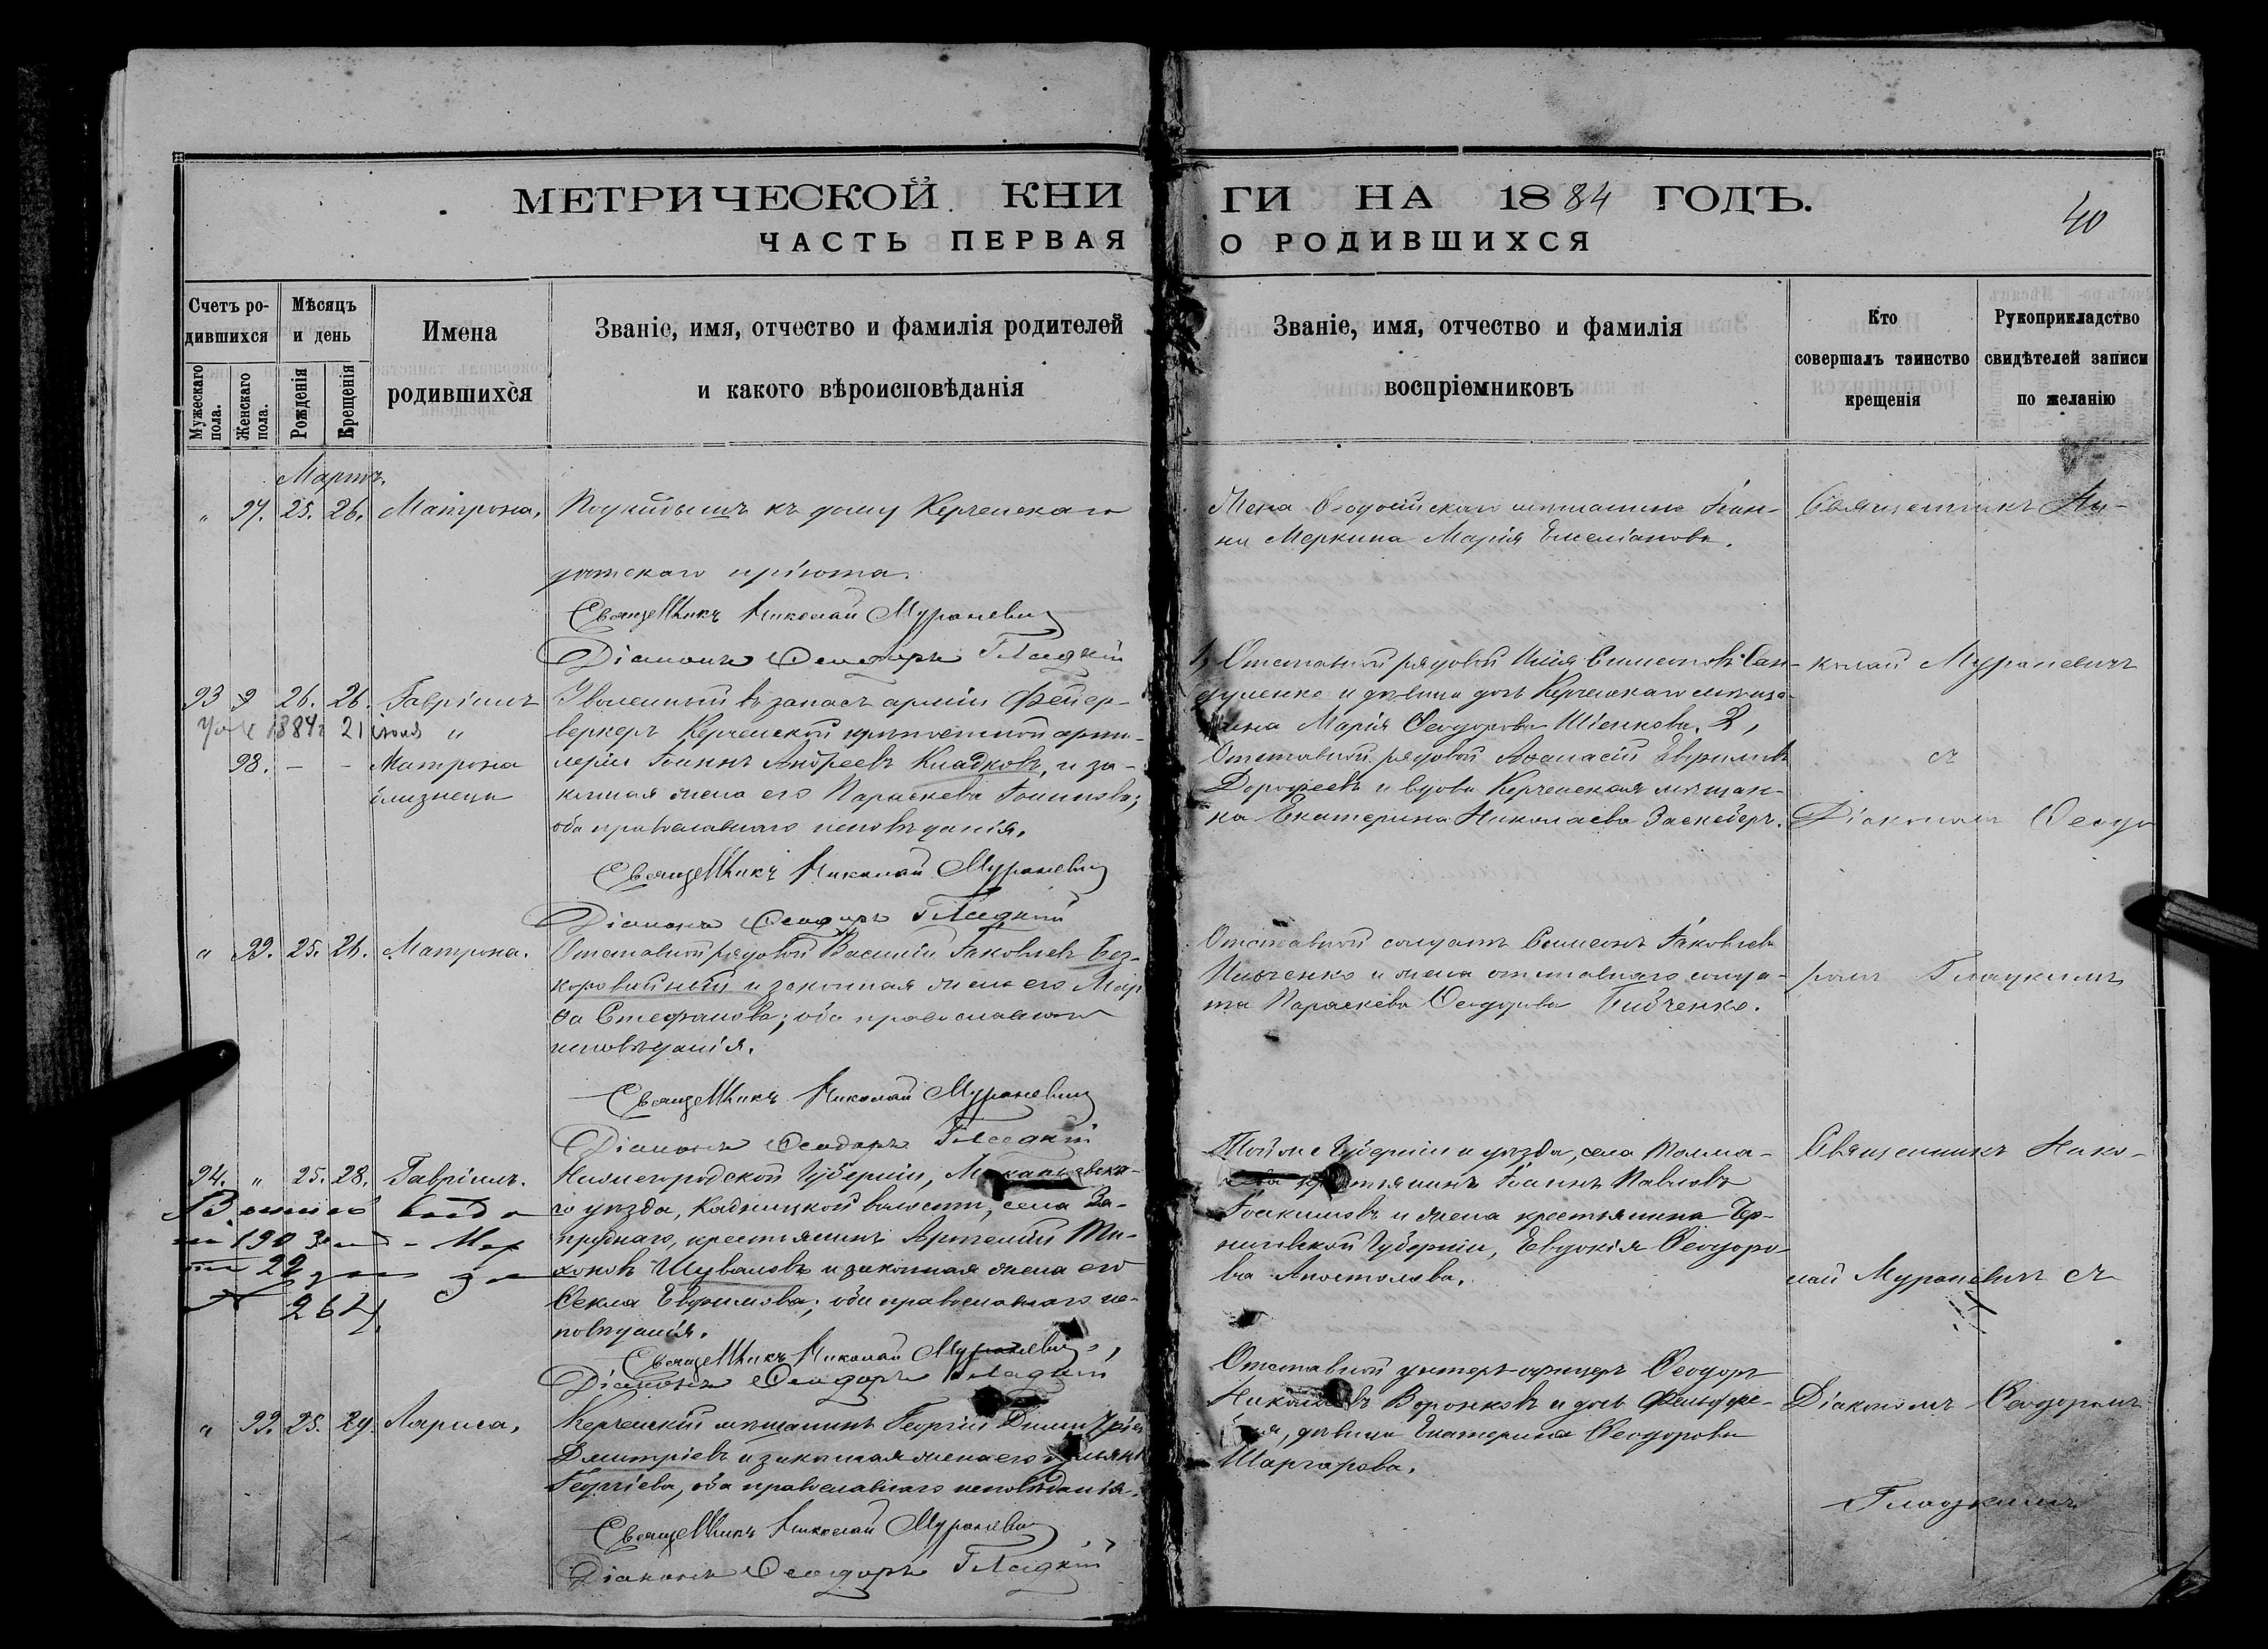 МЕТРИЧЕСКОЙ КНИ
ГИ НА 1884 ГОДЪ.
40
ЧАСТЬ ПЕРВАЯ
О РОДИВШИХСЯ
Счетъ ро-
дившихся
Мужескаго
пола.
Женскаго
пола.
Мѣсяцъ
и день
Рожденія
Крещенія
Имена
родившихся
Званіе, имя, отчество и фамилія родителей
и какого вѣроисповѣданія
Званіе, имя, отчество и фамилія
воспріемниковъ
Кто
совершалъ таинство
крещенія
Рукоприкладство
свидѣтелей записи
по желанію
Мартъ.
" 97. 25. 26. Матрона. Подкидышъ къ дому Керченскаго
дѣтскаго пріюта.
Священникъ Николай Мураневич
Діаконъ Ѳеодоръ Гладкій
Жена Ѳеодосійскаго мѣщанина Іоан-
на Меркина Марія Емеліанова.
Священникъ Ни-
93 26. 26. Гавріилъ Уволенный въ запасъ арміи Фейер-
1884 21 іюля "
веркеръ Керченской крѣпостной арти-
98. - - Матрона
близнецы
леріи Іоаннъ Андреевъ Кладковъ, и за-
конная жена его Параскева Іоаннова;
оба православнаго исповѣданія.
Священникъ Николай Мураневич
Діаконъ Ѳеодоръ Гладкій
1, Отставной рядовой Илія Симеоновъ
и дѣвица дочь Керченскаго мѣща-
нина Марія Ѳеодорова 2,
Отставной рядовой Аѳанасій Евфиміевъ
Дороѳеевъ и вдова Керченская мѣщан-
ка Екатерина Николаева
колай Мураневичъ
съ
Діакономъ Ѳеодо
" 99. 25. 26. Матрона. Отставной рядовой Василій Іаковлевъ Без-
коровайный и законная жена его Мар
ѳа Стефанова; оба православнаго
исповѣданія.
Священникъ Николай Мураневич
Діаконъ Ѳеодоръ Гладкій
Отставной солдатъ Симеонъ Іаковлевъ
Ильченко и жена отставнаго солда-
та Параскева Ѳеодорова
ромъ Гладкимъ
94. " 25. 28. Гавріилъ. Нижегородской Губерніи, Макарьевска-
го уѣзда, Кадницкой волости, села За-
пруднаго, крестьянинъ Артемій Ти-
хоновъ Шуваловъ и законная жена его
Ѳекла Евфимова; оба православнаго ис-
повѣданія.
190
22
264
Священникъ Николай Мураневич
Діаконъ Ѳеодоръ Гладкій
Той же Губерніи и уѣзда, села
крестьянинъ Іоаннъ Павловъ
Іоакимовъ и жена крестьянина Чер-
ниговской Губерніи, Евдокія Ѳеодоро-
ва Апостолова.
Священникъ Нико-
лай Мураневичъ съ
" 99. 25. 29. Лариса. Керченскій мѣщанинъ Георгій Димитріев
Дмитріевъ и законная жена его
Георгіева, оба православнаго исповѣданія.
Священникъ Николай Мураневич
Діаконъ Ѳеодоръ Гладкій
Отставной унтеръ-офицеръ Ѳеодоръ
Николаевъ Воронковъ и дочь
дѣвица Екатерина Ѳеодорова
Діакономъ Ѳеодоромъ
Гладкимъ